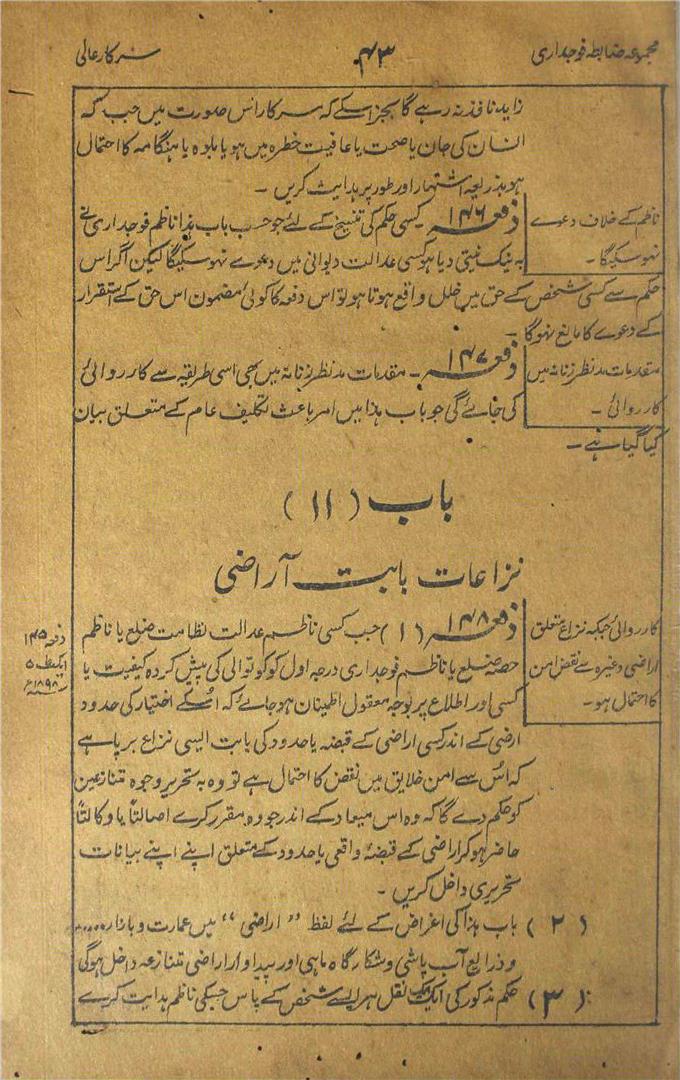 مجموعہ ضابطہ فوجداری
۴۳
سرکار عالی
زاید نافذ نہ رہے گا بجز اسکے کہ سرکار اس صورت میں جب کہ
انسان کی جان یا صحت یا عافیت خطرہ میں ہو یا بلوہ یا ہنگامہ کا احتمال
ہو بذریعہ اشتہار اور طور پر ہدایت کریں ۔
ناظم کے خلاف دعوے
نہو سکیگا ۔
دفعہ ۱۴۶ ۔ کسی حکم کی تنسیخ کے لئے جو حسب باب ہذا ناظم فوجداری نے
بہ نیک نیتی دیا ہو کسی عدالت دیوانی میں دعوے نہو سکیگا لیکن اگر اس
حکم سے کسی شخص کے حق میں خلل واقع ہوتا ہو تو اس دفعہ کا کوئی مضمون اس حق کے استقرار
کے دعوے کا مانع نہوگا ۔
مقدمات مد نظر زنانہ میں
کارروائی ۔
دفعہ ۱۴۷ ۔ مقدمات مد نظر زنانہ میں بھی اسی طریقہ سے کارروائی
کی جائے گی جو باب ہذا میں امر باعث تکلیف عام کے متعلق بیان
کیا گیا ہے ۔
باب (۱۱)
نزاعات بابت آراضی
کارروائی جبکہ نزاع متعلق
اراضی وغیرہ سے نقض امن
کا احتمال ہو ۔
دفعہ ۱۴۸ (۱) جب کسی ناظم عدالت نظامت ضلع یا ناظم
حصہ ضلع یا ناظم فوجداری درجہ اول کو کوتوالی کی پیش کردہ کیفیت یا
کسی اور اطلاع پر بوجہ معقول اطمینان ہو جائے کہ اُسکے اختیار کی حدود
ارضی کے اندر کسی اراضی کے قبضہ یا حدود کی بابت ایسی نزاع برپا ہے
کہ اس سے امن خلایق میں نقض کا احتمال ہے تو وہ بہ تحریر وجوہ متنازعین
کو حکم دے گا کہ وہ اس میعاد کے اندر جو وہ مقرر کرے اصالتاً یا وکالتاً
حاضر ہو کر اراضی کے قبضۂ واقعی یا حدود کے متعلق اپنے اپنے بیانات
تحریری داخل کریں ۔
دفعہ ۱۴۵
ایکٹ ۵
۱۸۹۸ء
(۲) باب ہذا کی اغراض کے لئے لفظ "اراضی" میں عمارت و بازار......
و ذرایع آب پاشی و شکار گاہ ماہی اور پیداوار اراضی متنازعہ داخل ہوگی
(۳) حکم مذکور کی ایک ایک نقل ہر ایسے شخص کے پاس جسکی ناظم ہدایت کرے